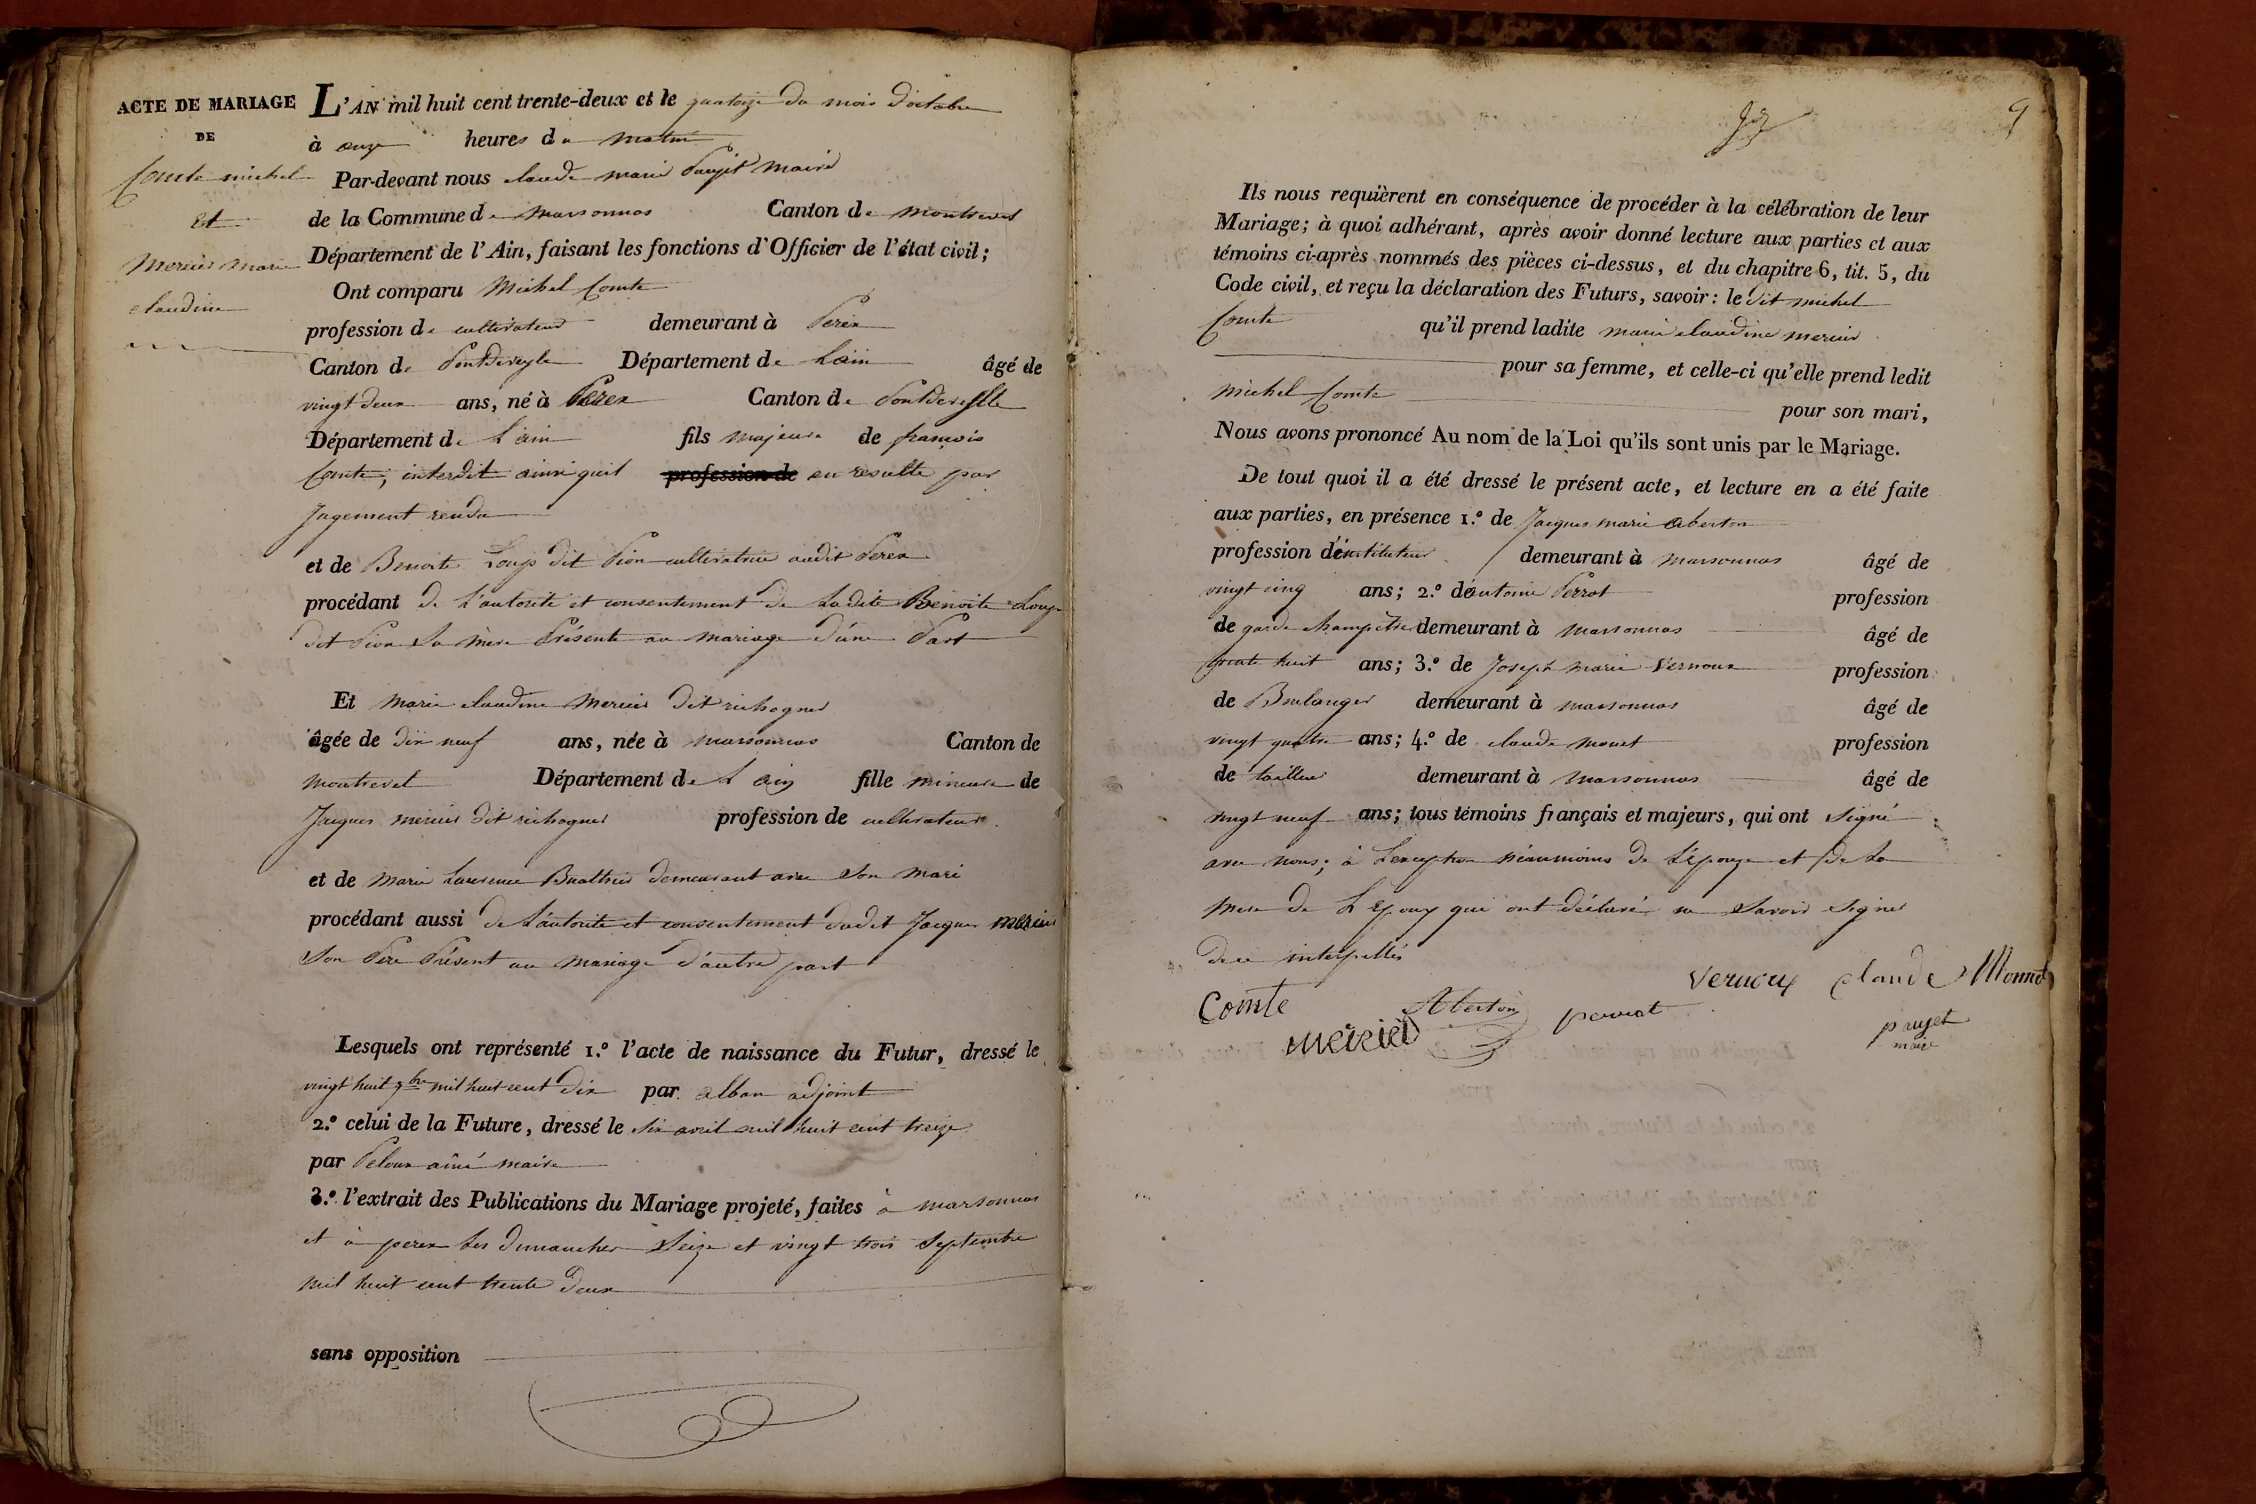 ACTE DE MARIAGE
DE
Comte michel
et
Mercier marie
claudine
L'AN mil huit cent trente-deux et le quatorze du mois d'octobre
à onze heures du matin
Par-devant nous claude marie Paujet Maire
de la Commune de marsonnas Canton de montrevel
Département de l'Ain, faisant les fonctions d'Officier de l'état civil;
Ont comparu Michel Comte
profession de cultivateur demeurant à Perex
Canton de Pontdeveyle Département de L'ain âgé de
vingt deux ans, né à Perex Canton de Pontdeveslle
Département de L'ain fils majeur de françois
Comte, interdit ainsi quil profession de en resulte par
Jugement rendu
et de Benoite Loup dit Pion cultivatrice audit Perex
procédant de L'autorité et consentement de Ladite Benoite Loup
dit Pion Sa mère Présente au mariage d'une Part
Et marie claudine Mercier dit richogner
âgée de dix neuf ans, née à marsonnas Canton de
montrevel Département de L ain fille mineure de
Jacques mercier dit richogner profession de cultivateur
et de marie Laurence Buathier demeurant avec Son mari
procédant aussi de L'autorité et consentement dudit Jacques mercier
Son Père Présent au mariage d'autre part
Lesquels ont représenté 1.º l'acte de naissance du Futur, dressé le
vingt huit 7bre mil huit cent dix par alban adjoint
2.º celui de la Future, dressé le six avril mil huit cent treize
par Peloux aîné maire
3.º l'extrait des Publications du Mariage projeté, faites à marsonnas
et à perex les dimanches Seize et vingt trois Septembre
mil huit cent trente deux
sans opposition
9
Ils nous requièrent en conséquence de procéder à la célébration de leur
Mariage; à quoi adhérant, après avoir donné lecture aux parties et aux
témoins ci-après nommés des pièces ci-dessus, et du chapitre 6, tit. 5, du
Code civil, et reçu la déclaration des Futurs, savoir: le dit michel
Comte qu'il prend ladite marie claudine mercier
pour sa femme, et celle-ci qu'elle prend ledit
michel Comte pour son mari,
Nous avons prononcé Au nom de la Loi qu'ils sont unis par le Mariage.
De tout quoi il a été dressé le présent acte, et lecture en a été faite
aux parties, en présence 1.º de Jacques marie aberton
profession d'instituteur demeurant à marsonnas âgé de
vingt cinq ans; 2.º d'antoine Perrot profession
de garde champêtre demeurant à marsonnas âgé de
trente huit ans; 3.º de Joseph marie Vernoux profession
de Boulanger demeurant à marsonnas âgé de
vingt quatre ans; 4.º de claude monet profession
de tailleur demeurant à marsonnas âgé de
vingt neuf ans; tous témoins français et majeurs, qui ont Signé
avec nous; à L'exception néanmoins de L'épouse et de La
Mere de L Epoux qui ont déclaré ne Savoir Signer
de ce interpellés
Vernoux claude Monnet
Comte Aberton perrot
mercier paujet
maire